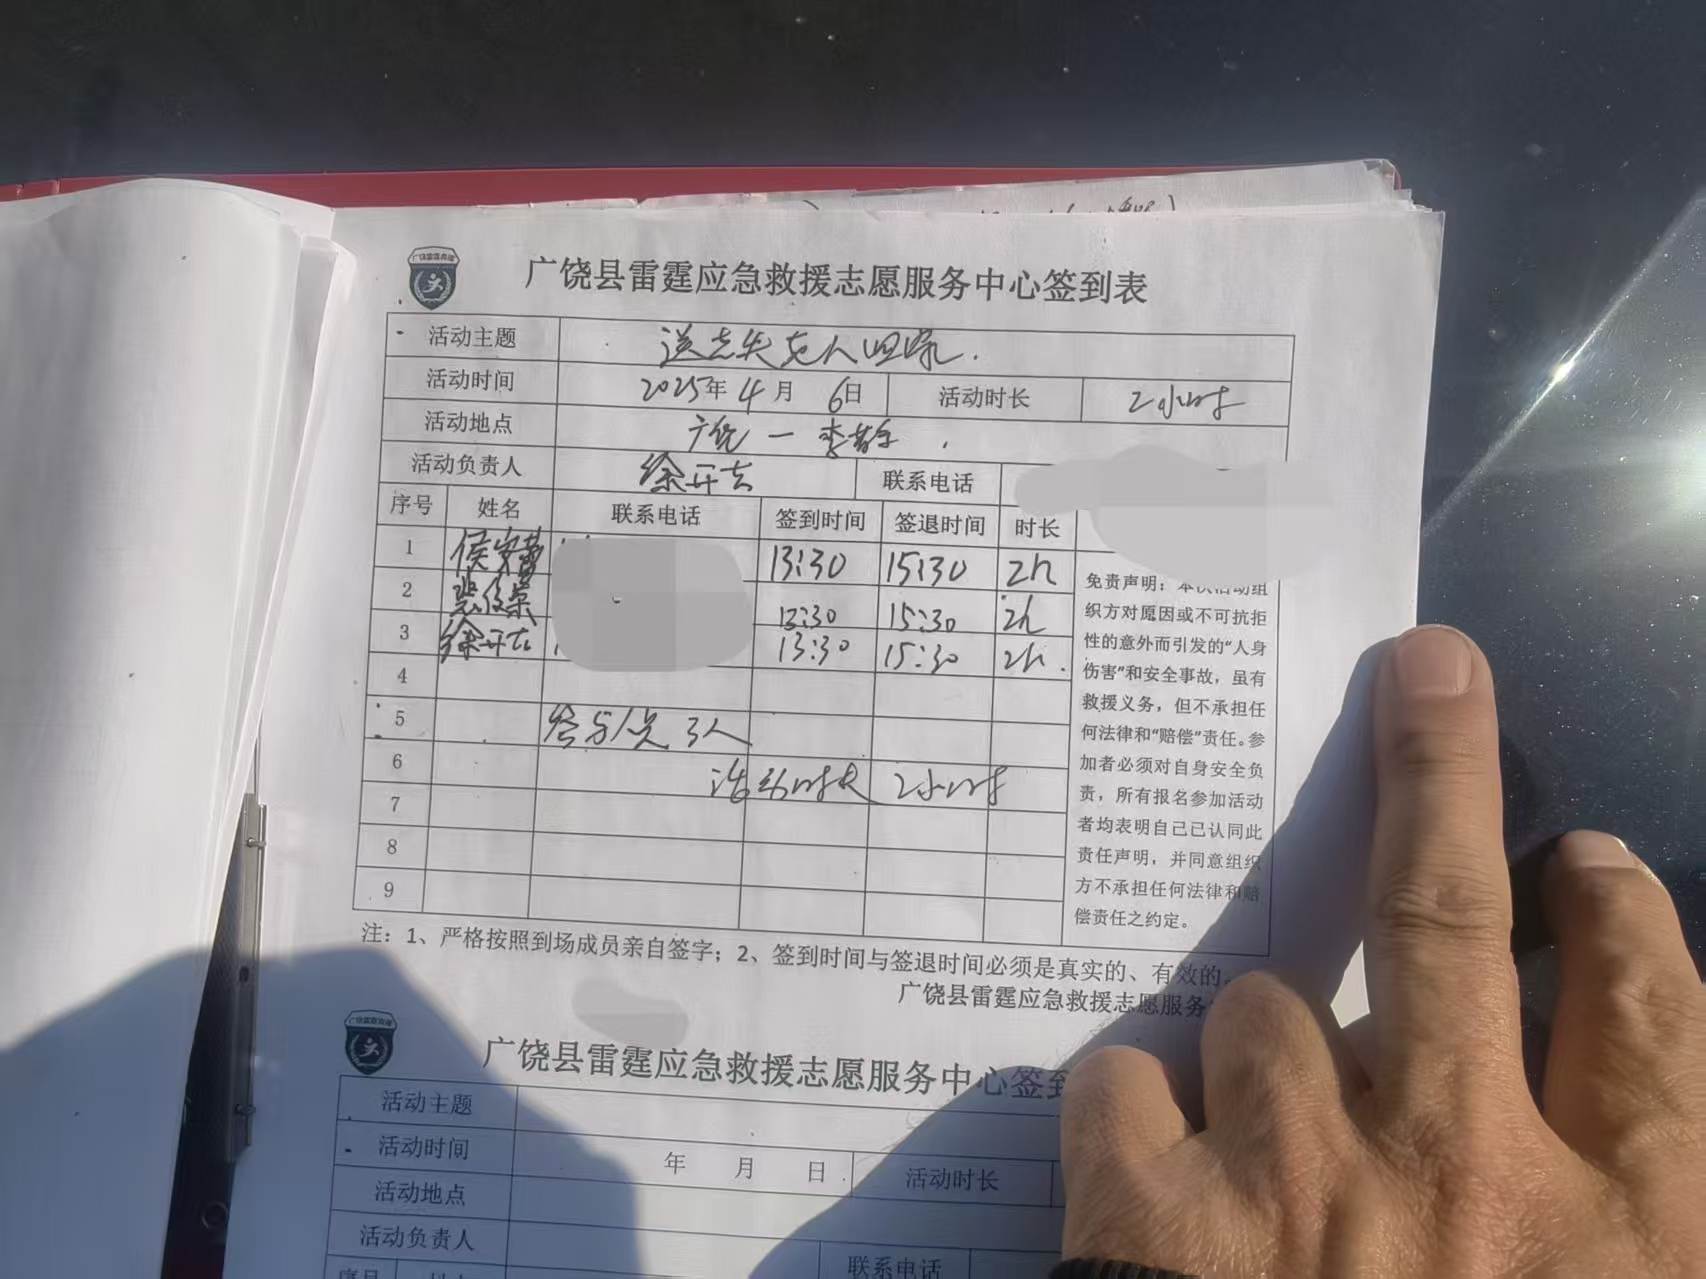 广饶县雷霆应急救援志愿服务中心签到表
活动主题 送走失老人回家.
活动时间 2025年4月6日 活动时长 2小时
活动地点 广饶一李鹊
活动负责人 徐开吉 联系电话
序号 姓名 联系电话 签到时间 签退时间 时长
1 13:30 15:30 2h
2 13:30 15:30 2h
3 徐开吉 13:30 15:30 2h.
4
5 参与人员 3人
6 活动时长 2小时
7
8
9
免责声明：本次活动组
织方对原因或不可抗拒
性的意外而引发的“人身
伤害”和安全事故，虽有
救援义务，但不承担任
何法律和“赔偿”责任。参
加者必须对自身安全负
责，所有报名参加活动
者均表明自己已认同此
责任声明，并同意组织
方不承担任何法律和赔
偿责任之约定。
注：1、严格按照到场成员亲自签字；2、签到时间与签退时间必须是真实的、有效的。
广饶县雷霆应急救援志愿服务
广饶县雷霆应急救援志愿服务中心签到
活动主题
活动时间 年 月 日 活动时长
活动地点
活动负责人 联系电话
序号 姓名